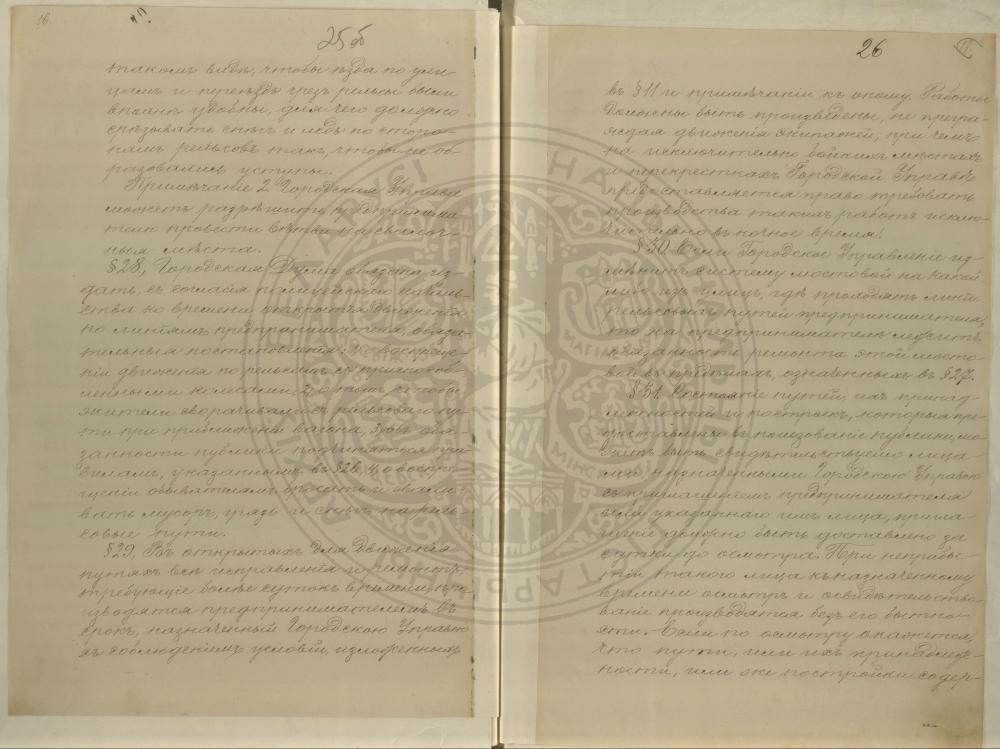 16.
25 об
такомъ видѣ, чтобы ѣзда по ули-
цамъ и переѣздъ чрезъ рельсы были
вполнѣ удобны, для чего должно
срѣзывать снѣгъ и ледъ по сторо-
намъ рельсовъ такъ, чтобы не об-
разовались уступы.
Примѣчаніе 2. Городская Управа
можетъ разрѣшить предпринима-
телю провести вѣтви на свалоч-
ныя мѣста.
§28, Городская Дума обязана из-
дать, съ согласія полицейскаго началь-
ства ко времени открытія движенія
по линіямъ предпринимателя, обяза-
тельныя постановленія: 1, о воспреще-
ніи движенія по рельсамъ съ приспособ-
ленными колесами, 2, о томъ, чтобы
жители сворачивали съ рельсоваго пу-
ти при приближеніи вагона, 3, объ обя-
занности публики подчиняться пра-
виламъ, указаннымъ въ §26, 4, о воспре-
щеніи обывателямъ бросать и свали-
вать мусоръ, грязь и снѣгъ на рель-
совые пути.
§29, Въ открытыхъ для движенія
путяхъ всѣ исправленія и ремонтъ,
требующіе болѣе сутокъ времени, про-
изводятся предпринимателемъ въ
срокъ, назначенный Городскою Управою
съ соблюденіемъ условій, изложенныхъ
26
въ §11 и примѣчаніи къ оному. Работы
должны быть произведены, не прегра-
ждая движенія экипажей, при чемъ
на исключительно бойкихъ мѣстахъ
и перекресткахъ Городской Управѣ
предоставляется право требовать
производства такихъ работъ исклю-
чительно въ ночное время.
§30. Если Городское Управленіе из-
мѣнитъ систему мостовой на какой
либо изъ улицъ, гдѣ проходятъ линіи
рельсовыхъ путей предпринимателя,
то на предпринимателѣ лежитъ
обязанность ремонта этой мосто-
вой въ предѣлахъ, означенныхъ въ §27.
§31. Состояніе путей, ихъ принад-
лежностей и построекъ, которыя пре-
доставлены въ пользованіе публики, мо-
жетъ быть свидѣтельствуемо лица-
ми, назначенными Городскою Управою
съ приглашеніемъ предпринимателя
или указаннаго имъ лица, пригла-
шеніе должно быть доставлено за
сутки до осмотра. При неприбы-
тіи такого лица къ назначенному
времени осмотръ и освидѣтельство-
ваніе производятся безъ его бытно-
сти. Если по осмотру окажется,
что пути, или ихъ принадлеж-
ности, или же постройки содер-